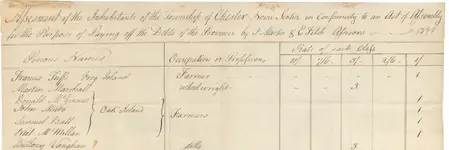 Assessment of the Inhabitants of the Township of Chester Nova Scotia in Conformity to an Act of Assembly
for the Purpose of Paying off the Debt of the Province by Assessors 1791
Rate of each Class
Persons Names Occupation or Profession 10/ 7/6 5/ 2/6 1/
Francis Island Farmer 1
Martin Marshall wheelwright 3
Donald McGinnis 1
John 1
Oak Island Farmers
Samuel Ball 1
Neil McMillan 1
Vaughan ditto 3